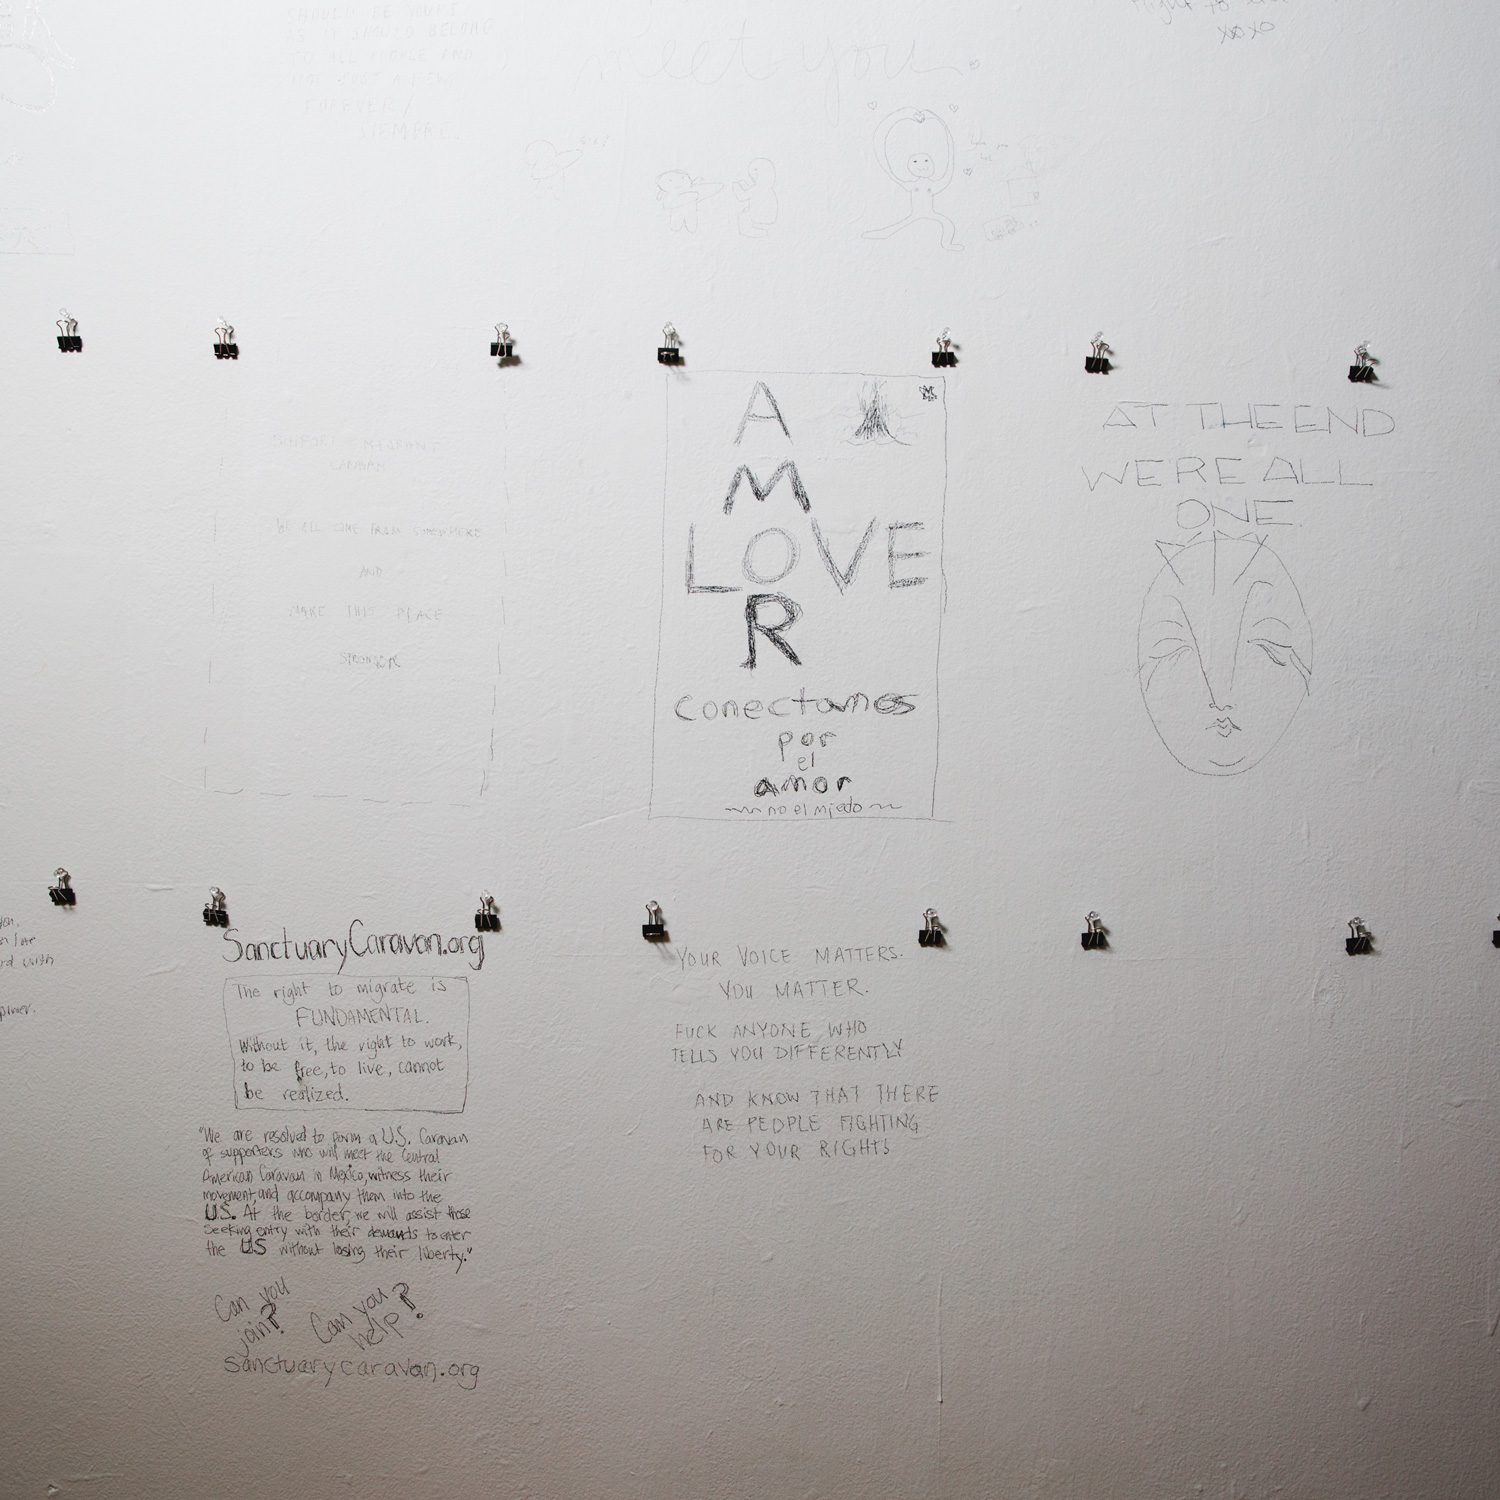 SHOULD BE YOURS
AS IT SHOULD BELONG
TO ALL PEOPLE AND
NOT JUST A FEW
FOREVER /
SIEMPRE.
meet you
xoxo
SUPPORT MIGRANT
CARAVAN
WE ALL COME FROM SOMEWHERE
AND
MAKE THIS PLACE
STRONGER
A
M
LOVE
R
Conectamos
por
el
amor
no el miedo
AT THE END
WERE ALL
ONE.
SanctuaryCaravan.org
The right to migrate is
FUNDAMENTAL.
Without it, the right to work,
to be free, to live, cannot
be realized.
"We are resolved to form a U.S. Caravan
of supporters who will meet the Central
American Caravan in Mexico, witness their
movement, and accompany them into the
U.S. At the border, we will assist those
seeking entry with their demands to enter
the US without losing their liberty."
Can you
join?
Can you
help?
sanctuarycaravan.org
YOUR VOICE MATTERS.
YOU MATTER.
FUCK ANYONE WHO
TELLS YOU DIFFERENTLY
AND KNOW THAT THERE
ARE PEOPLE FIGHTING
FOR YOUR RIGHTS